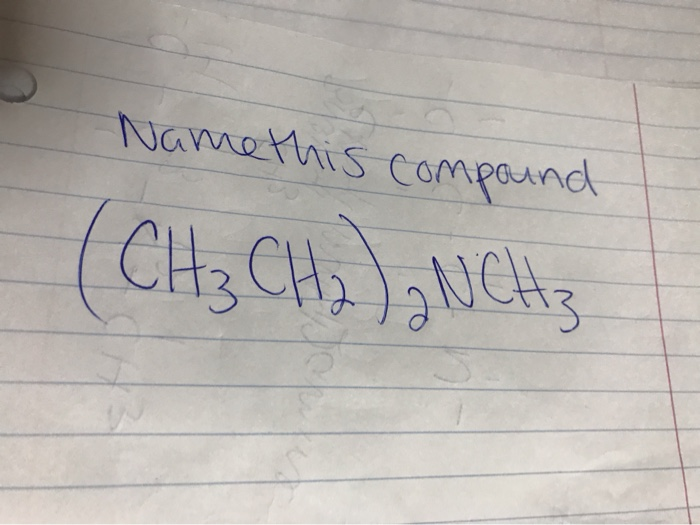 Name this compound
(CH₃CH₂)₂NCH₃